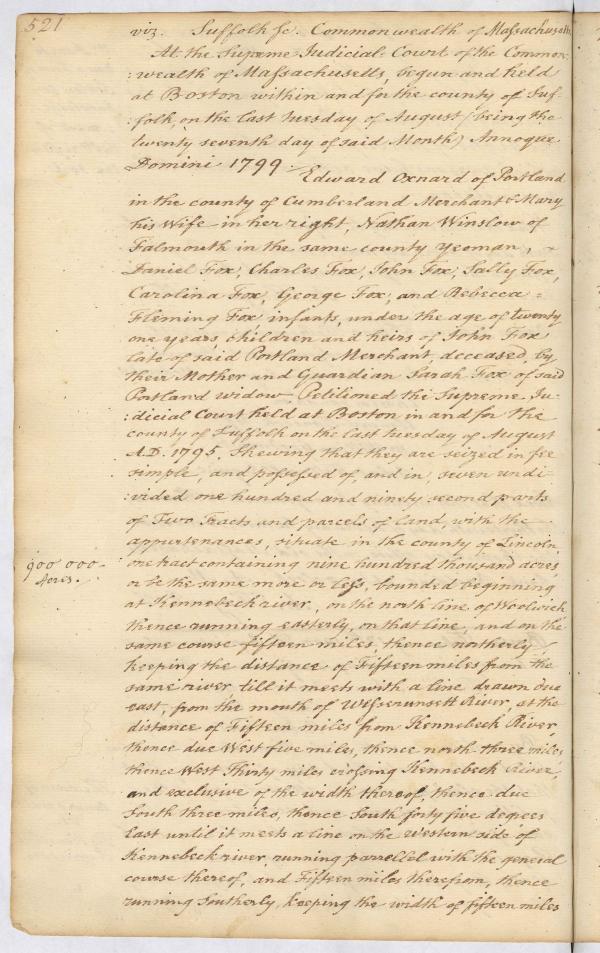 521
viz. Suffolk sc. Commonwealth of Massachusetts
At the Supreme Judicial Court of the Common:
:wealth of Massachusetts, begun and held
at Boston within and for the county of Suf-
:folk, on the last tuesday of August (being the
twenty seventh day of said Month) Annoque
Domini 1799.
Edward Oxnard of Portland
in the county of Cumberland Merchant & Mary
his Wife in her right, Nathan Winslow of
Falmouth in the same county yeoman,
Daniel Fox, Charles Fox, John Fox, Sally Fox,
Carolina Fox, George Fox, and Rebecca =
Fleming Fox infants, under the age of twenty
one years, children and heirs of John Fox
late of said Portland Merchant, deceased, by
their Mother and Guardian Sarah Fox of said
Portland widow. Petitioned the Supreme Ju-
:dicial Court held at Boston in and for the
county of Suffolk on the last tuesday of August
A.D. 1795, Shewing that they are seized in fee
simple, and possessed of, and in, seven undi-
:vided one hundred and ninety second parts
of Two Tracts and parcels of land, with the
appurtenances, situate in the county of Lincoln
900 000
Acres.
one tract containing nine hundred thousand acres
or be the same more or less, bounded beginning
at Kennebeck river, on the north line of Woolwich
thence running easterly, on that line, and on the
same course fifteen miles, thence northerly
keeping the distance of Fifteen miles from the
same river till it meets with a line drawn due
east, from the mouth of Wesserunsett River, at the
distance of Fifteen miles from Kennebeck River,
thence due West five miles, thence north three miles,
thence West Thirty miles crossing Kennebeck River,
and exclusive of the width thereof, thence due
South three miles, thence South forty five degrees
East until it meets a line on the western side of
Kennebeck river, running parrellel with the general
course thereof, and Fifteen miles therefrom, thence
running Southerly, keeping the width of fifteen miles